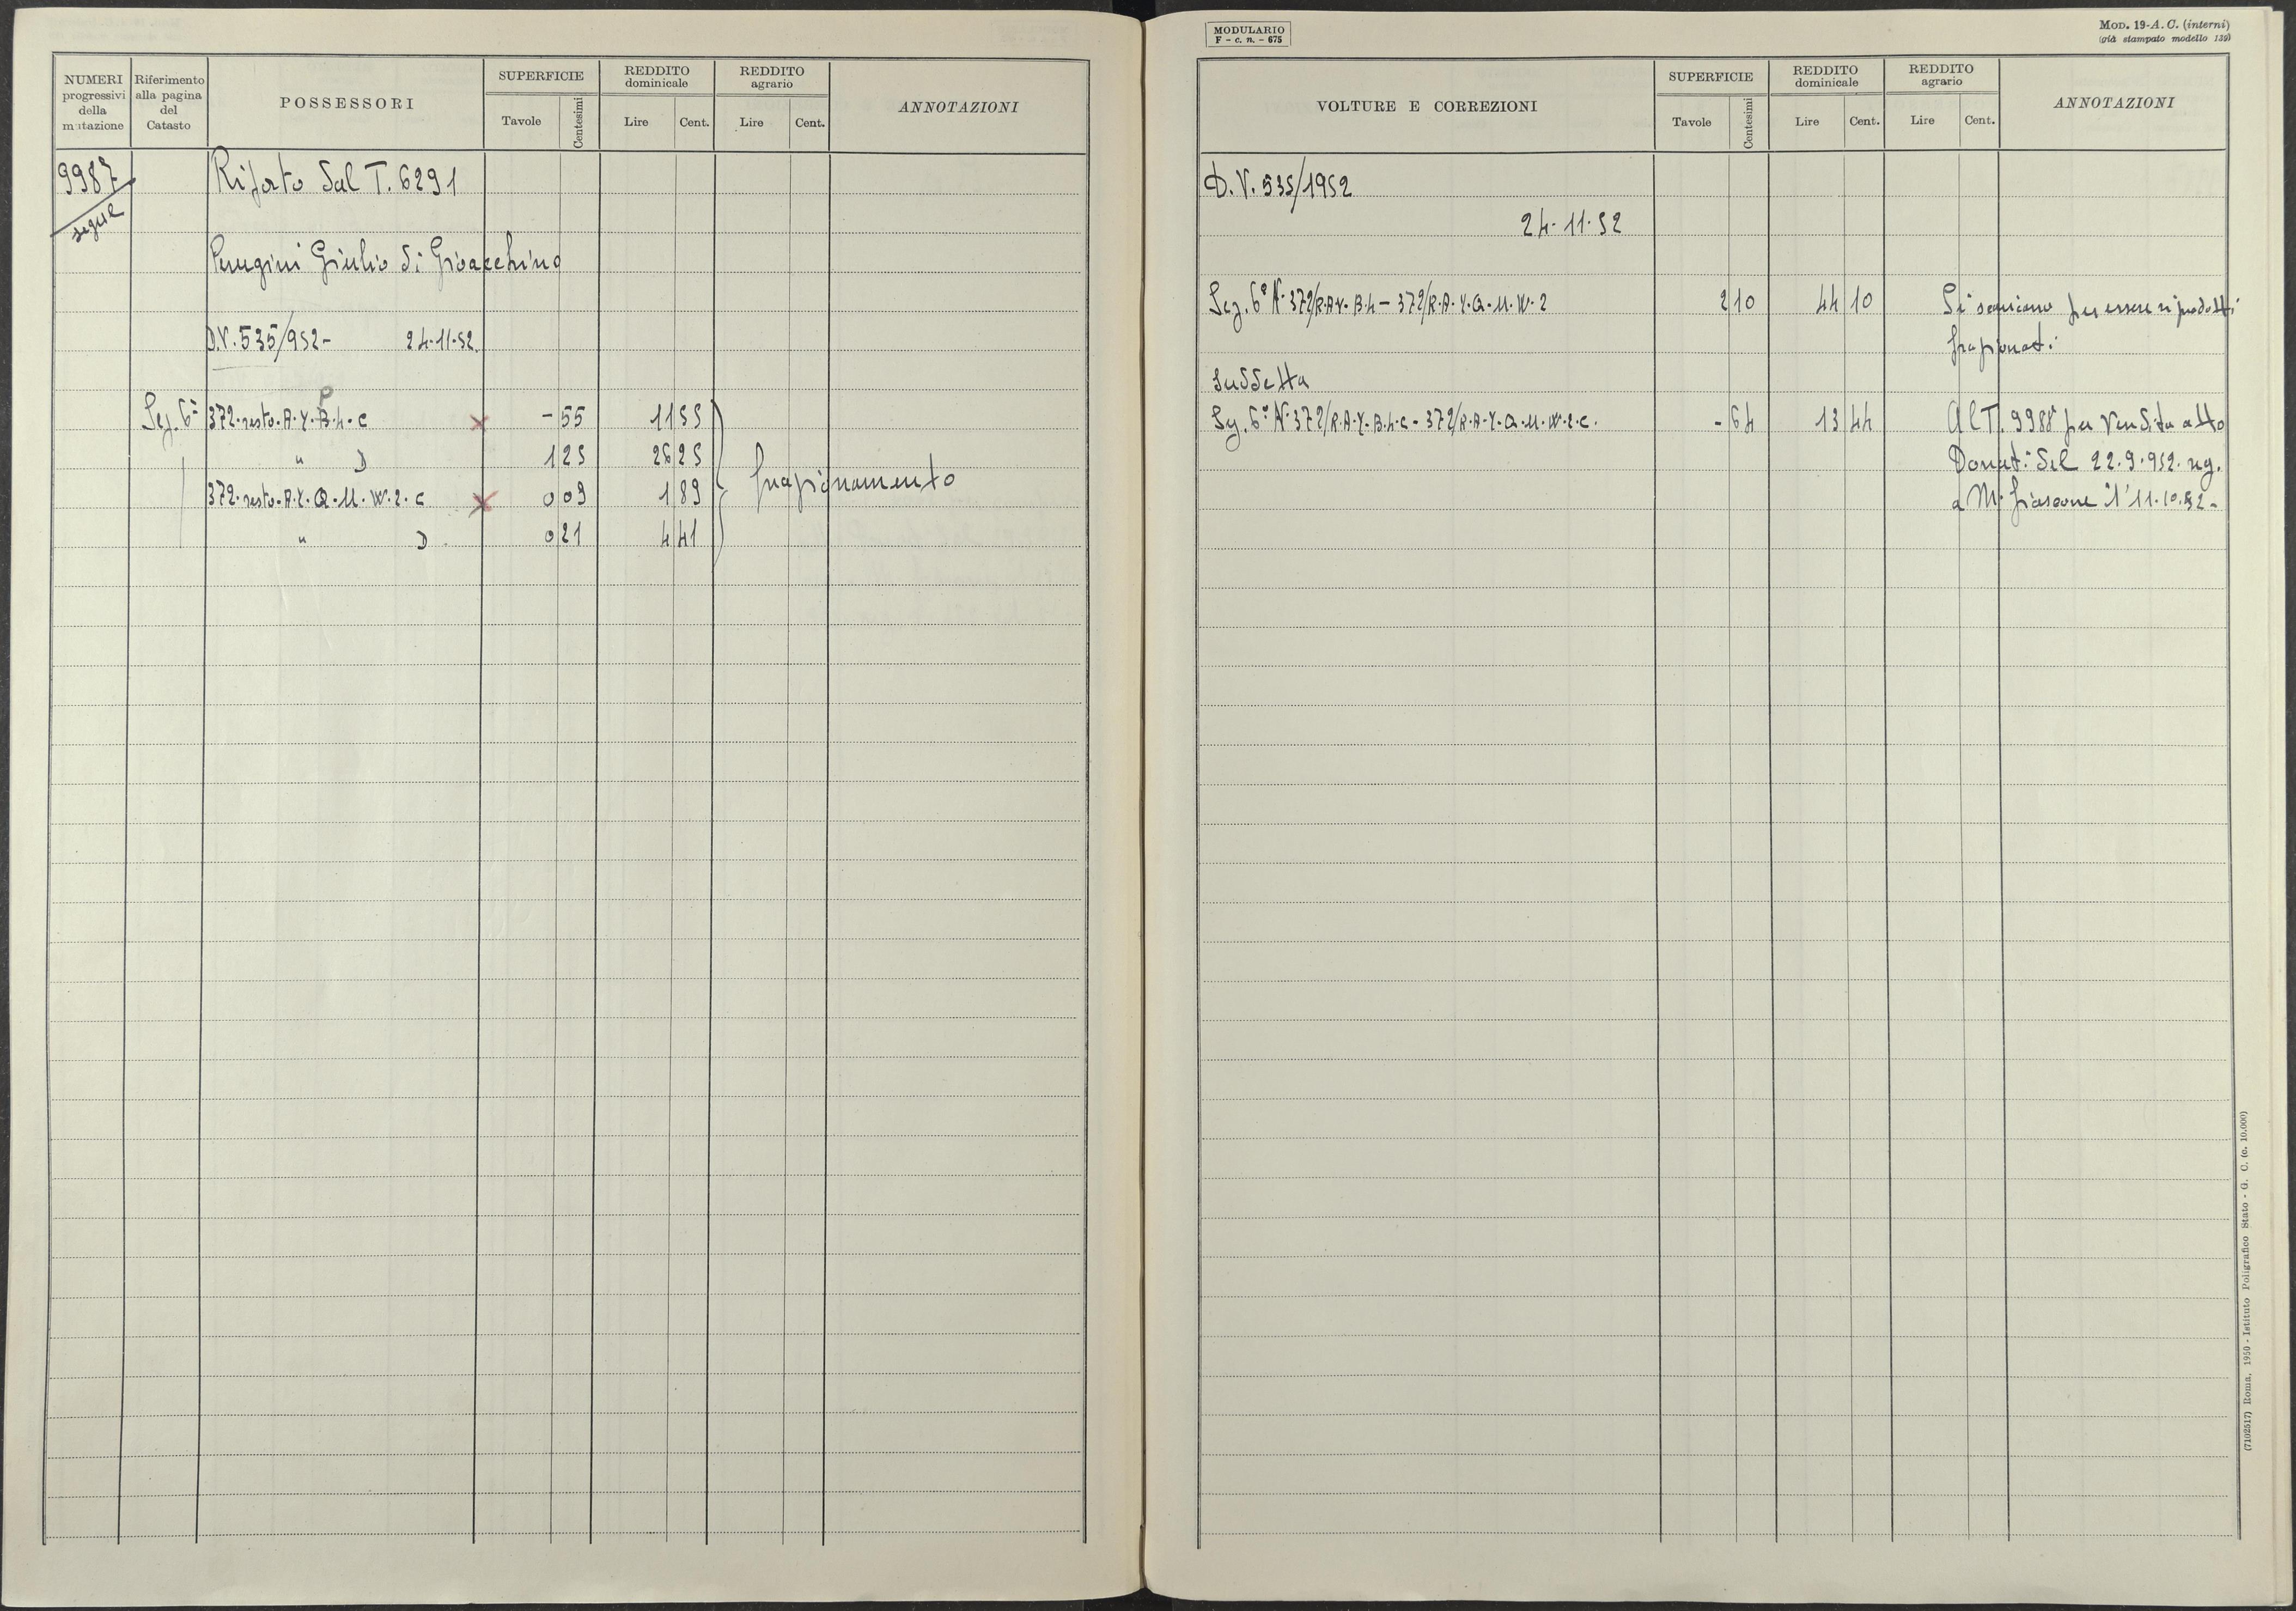 NUMERI progressivi della mutazione
Riferimento alla pagina del Catasto
POSSESSORI
SUPERFICIE
Tavole Centesimi
REDDITO dominicale
Lire Cent.
REDDITO agrario
Lire Cent.
ANNOTAZIONI
9987 Riporto dal T. 6291
segue
Perugini Giulio di Gioacchino
D.V. 535/952- 24-11-52.
P
Sez. 6ª 372.resto.A.Y.B.4.C x -55 11 55
" D 1 25 26 25
frazionamento
372.resto.A.Y.Q.U.W.2.C x 0 09 1 89
" D 0 21 4 41
MODULARIO
F - c. n. - 675
MOD. 19-A. C. (interni)
(già stampato modello 139)
VOLTURE E CORREZIONI
SUPERFICIE
Tavole Centesimi
REDDITO dominicale
Lire Cent.
REDDITO agrario
Lire Cent.
ANNOTAZIONI
D.V. 535/1952
24-11-52
Sez. 6ª N. 372/R.A.Y.B.4 - 372/R.A.Y.Q.U.W.2 2 10 44 10 Si scaricano per essere riprodotti
frazionati
Suddetta
Sez. 6ª N. 372/R.A.Y.B.4.C - 372/R.A.Y.Q.U.W.2.C. - 64 13 44 Al T. 9988 per vendita atto
Donati del 22.9.952. reg.
a M. Fiascone l'11.10.52-
(7102517) Roma, 1950 - Istituto Poligrafico Stato - G. C. (c. 10.000)